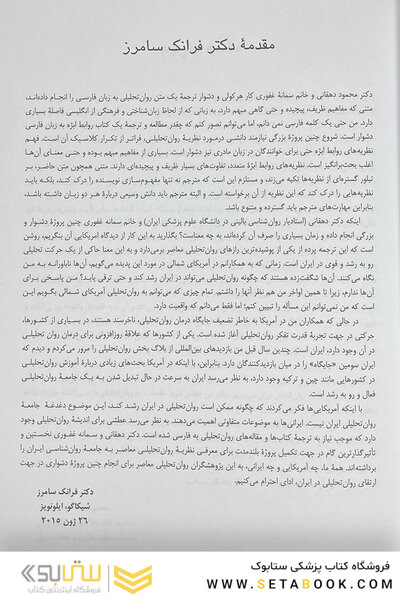 مقدمهٔ دکتر فرانک سامرز
دکتر محمود دهقانی و خانم سمانهٔ غفوری کار هرکولی و دشوار ترجمهٔ یک متن روان‌تحلیلی به زبان فارسی را انجام داده‌اند،
متنی که مفاهیم ظریف، پیچیده و حتی گاهی مبهم دارد، به زبانی که از لحاظ زبان‌شناختی و فرهنگی از انگلیسی فاصلهٔ بسیاری
دارد. من حتی یک کلمه فارسی نمی دانم، اما می‌توانم تصور کنم که چقدر مطالعه و ترجمهٔ یک کتاب روابط ابژه به زبان فارسی
دشوار است. شروع چنین پروژهٔ بزرگی نیازمند دانشی درمورد نظریه‌های روان‌تحلیلی، فراتر از تفکر کلاسیک آن است. فهم
نظریه‌های روابط ابژه حتی برای خوانندگان در زبان مادری نیز دشوار است. بسیاری از مفاهیم مبهم بوده و حتی معنای آن‌ها
اغلب بحث‌برانگیز است. نظریه‌های روابط ابژهٔ متعدد، تفاوت‌های بسیار ظریف و پیچیده‌ای دارند. متنی همچون متن حاضر، بر
تبلور گستره‌ای از نظریه‌ها تکیه می‌زند، و مستلزم این است که مترجم نه تنها مفهوم‌سازی نویسنده را درک کند، بلکه باید
نظریه‌هایی را درک کند که این نظریه از آن برخواسته است. و البته مترجم باید دانش وسیعی دربارهٔ هر دو زبان داشته باشد.
بنابراین مهارت‌های مترجم باید گسترده و متنوع باشد.
اینکه دکتر دهقانی (استادیار روان‌شناسی بالینی در دانشگاه علوم پزشکی ایران) و خانم سمانه غفوری چنین پروژهٔ دشوار و
بزرگی انجام داده و زمان بسیاری را صرف آن کرده‌اند، به چه معناست؟ بگذارید به این کار از دیدگاه امریکایی آن بنگریم. روشن
است که این ترجمه پرده از یکی از پوشیده‌ترین رازهای روان‌تحلیلی معاصر برمی‌دارد و به این معنا حاکی از یک حرکت تحلیلی
رو به رشد و قوی در ایران است. زمانی که به همکارانم در آمریکای شمالی در مورد این پدیده می‌گویم، آن‌ها ناباورانه به من
نگاه می کنند. آن‌ها شگفت‌زده هستند که چگونه روان‌تحلیلی می‌تواند در ایران رشد کند و حتی ترقی یابد! من پاسخی برای
آن‌ها ندارم، زیرا تا همین اواخر من هم نظر آنها را داشتم. تمام چیزی که می‌توانم به روان‌تحلیلی آمریکای شمالی بگویم این
است که من نمی‌توانم این مسأله را تبیین کنم؛ اما فقط می‌دانم که واقعیت دارد.
در حالی که همکاران من در آمریکا به خاطر تضعیف جایگاه درمان روان‌تحلیلی، ناخرسند هستند، در بسیاری از کشورها،
حرکتی در جهت تجربهٔ قدرت تفکر روان‌تحلیلی آغاز شده است. یکی از کشورها که علاقهٔ روزافزونی برای درمان روان تحلیلی
در آن وجود دارد، ایران است. چندین سال قبل من بازدیدهای بین‌المللی از بلاگ بخش روان‌تحلیلی را مرور می‌کردم و دیدم که
ایران سومین «جایگاه» را در میان بازدیدکنندگان دارد. بنابراین، با اینکه در آمریکا بحث‌های زیادی دربارهٔ آموزش روان‌تحلیلی
در کشورهایی مانند چین و ترکیه وجود دارد، به نظر می‌رسد ایران به سرعت در حال تبدیل شدن به یک جامعهٔ روان‌تحلیلی
فعال و رو به رشد است.
با اینکه آمریکایی‌ها فکر می‌کردند که چگونه ممکن است روان‌تحلیلی در ایران رشد کند، این موضوع دغدغهٔ جامعهٔ
روان‌تحلیلی ایران نیست. ایرانی‌ها به موضوعات متفاوتی اهمیت می‌دهند. به نظر می‌رسد عطشی برای اندیشهٔ روان‌تحلیلی وجود
دارد که موجب نیاز به ترجمهٔ کتاب‌ها و مقاله‌های روان‌تحلیلی به فارسی شده است. دکتر دهقانی و سمانه غفوری نخستین و
تأثیرگذارترین گام در جهت تکمیل پروژهٔ بلندمدت برای معرفی نظریهٔ روان‌تحلیلی معاصر به جامعهٔ روان‌شناسی ایران را
برداشته‌اند. همهٔ ما، چه آمریکایی و چه ایرانی، به این پژوهشگران روان‌تحلیلی معاصر برای انجام چنین پروژهٔ دشواری در جهت
ارتقای روان‌تحلیلی در ایران، ادای احترام می‌کنیم.
دکتر فرانک سامرز
شیکاگو، ایلونویز
۲۶ ژون ۲۰۱۵
فروشگاه کتاب پزشکی ستابوک
WWW.SETABOOK.COM
ستابوک
فروشگاه اینترنتی کتاب